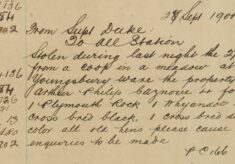 28 Sept 190
From Supt Duke
To all Station
Stolen during last night the 2
from a coop in a meadow at
Youngsbury ware the property
arthur Philip
1 Plymouth Rock 1 Whyandot
cross bred black. 1 cross bred
color all old hens please cause
enquiries to be made
P.C 166
136
84
136
31
13
702